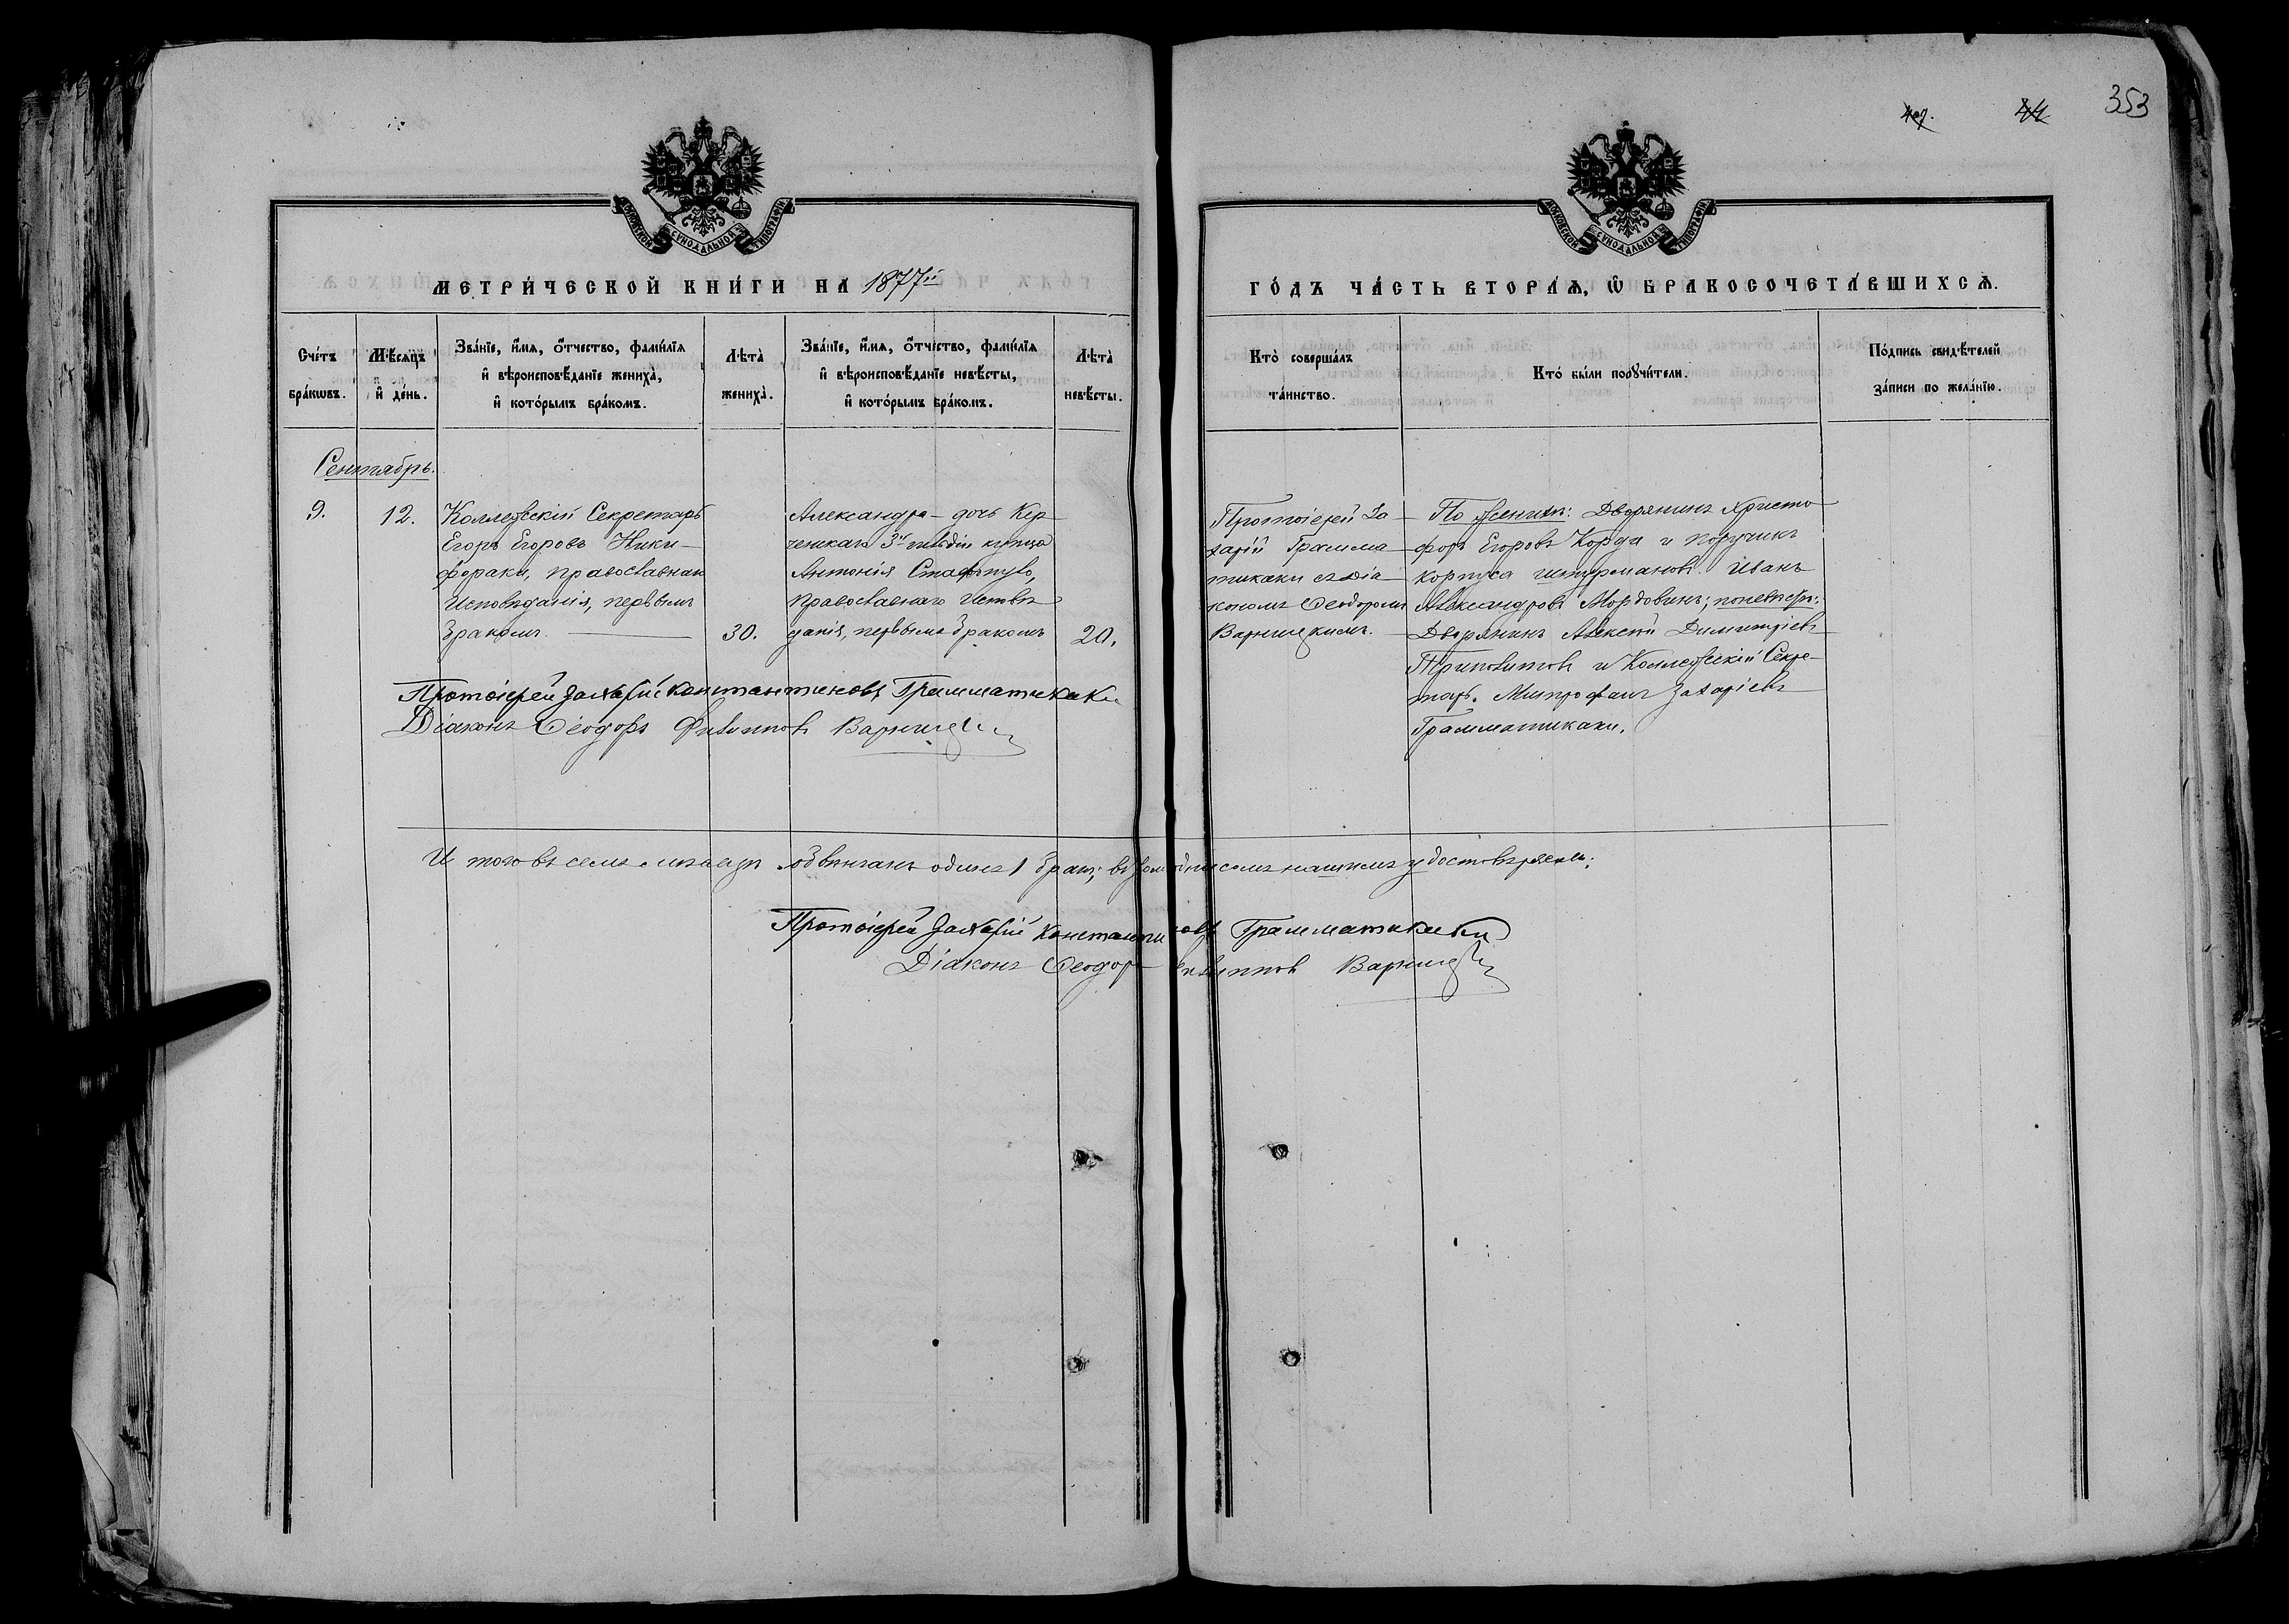 353
МОСКОВСКОЙ СУНОДАЛЬНОЙ ТИПОГРАФІИ
МОСКОВСКОЙ СУНОДАЛЬНОЙ ТИПОГРАФІИ
МЕТРИ́ЧЕСКОЙ КНИ́ГИ НА 1877й
ГО́ДЪ ЧА́СТЬ ВТОРА́Ѧ, Ѿ БРАКОСОЧЕТА́ВШИХСѦ.
Сче́тъ бра́кѡвъ.
Мѣ́сяцъ и҆ де́нь.
Зва́нїе, и҆́мя, ѻ҆́тчество, фами́лїя
и҆ вѣроисповѣ́данїе жениха̀,
и҆ кото́рымъ бра́комъ.
Лѣта̀ жениха̀.
Зва́нїе, и҆́мя, ѻ҆́тчество, фами́лїя
и҆ вѣроисповѣ́данїе невѣ́сты,
и҆ кото́рымъ бра́комъ.
Лѣта̀ невѣ́сты.
Кто̀ соверша́лъ
та́инство.
Кто̀ бы́ли порꙋчи́тели.
По́дпись свидѣ́телей
за́писи по жела́нїю.
Сентябрь.
9.
12.
Коллежскій Секретарь
Егоръ Егоровъ Ники-
фораки, православнаго
Исповѣданія, первымъ
бракомъ.
30.
Александра - дочь Кер-
ченскаго 3й гильдіи купца
Антонія
православнаго исповѣ-
данія, первымъ бракомъ
20.
Протоіерей За-
харій Грамма-
тикаки съ діа-
кономъ Ѳеодоромъ
Варницкимъ.
По женихѣ: Дворянинъ Христо-
форъ Егоровъ Корда и Поручикъ
корпуса штурмановъ Иванъ
Александровъ Мордовинъ; по невѣстѣ:
Дворянинъ Алексѣй Димитріевъ
и Коллежскій Секре-
тарь Митрофанъ Захаріевъ
Грамматикаки.
Протоіерей Захарій Константиновъ Грамматикаки
Діаконъ Ѳеодоръ Филипповъ Варницкій
Итого въ семъ мѣсяцѣ обвѣнчанъ одинъ 1 бракъ; въ удостовѣряемъ:
Протоіерей Захарій Константиновъ Грамматикаки
Діаконъ Ѳеодоръ Филипповъ Варницкій